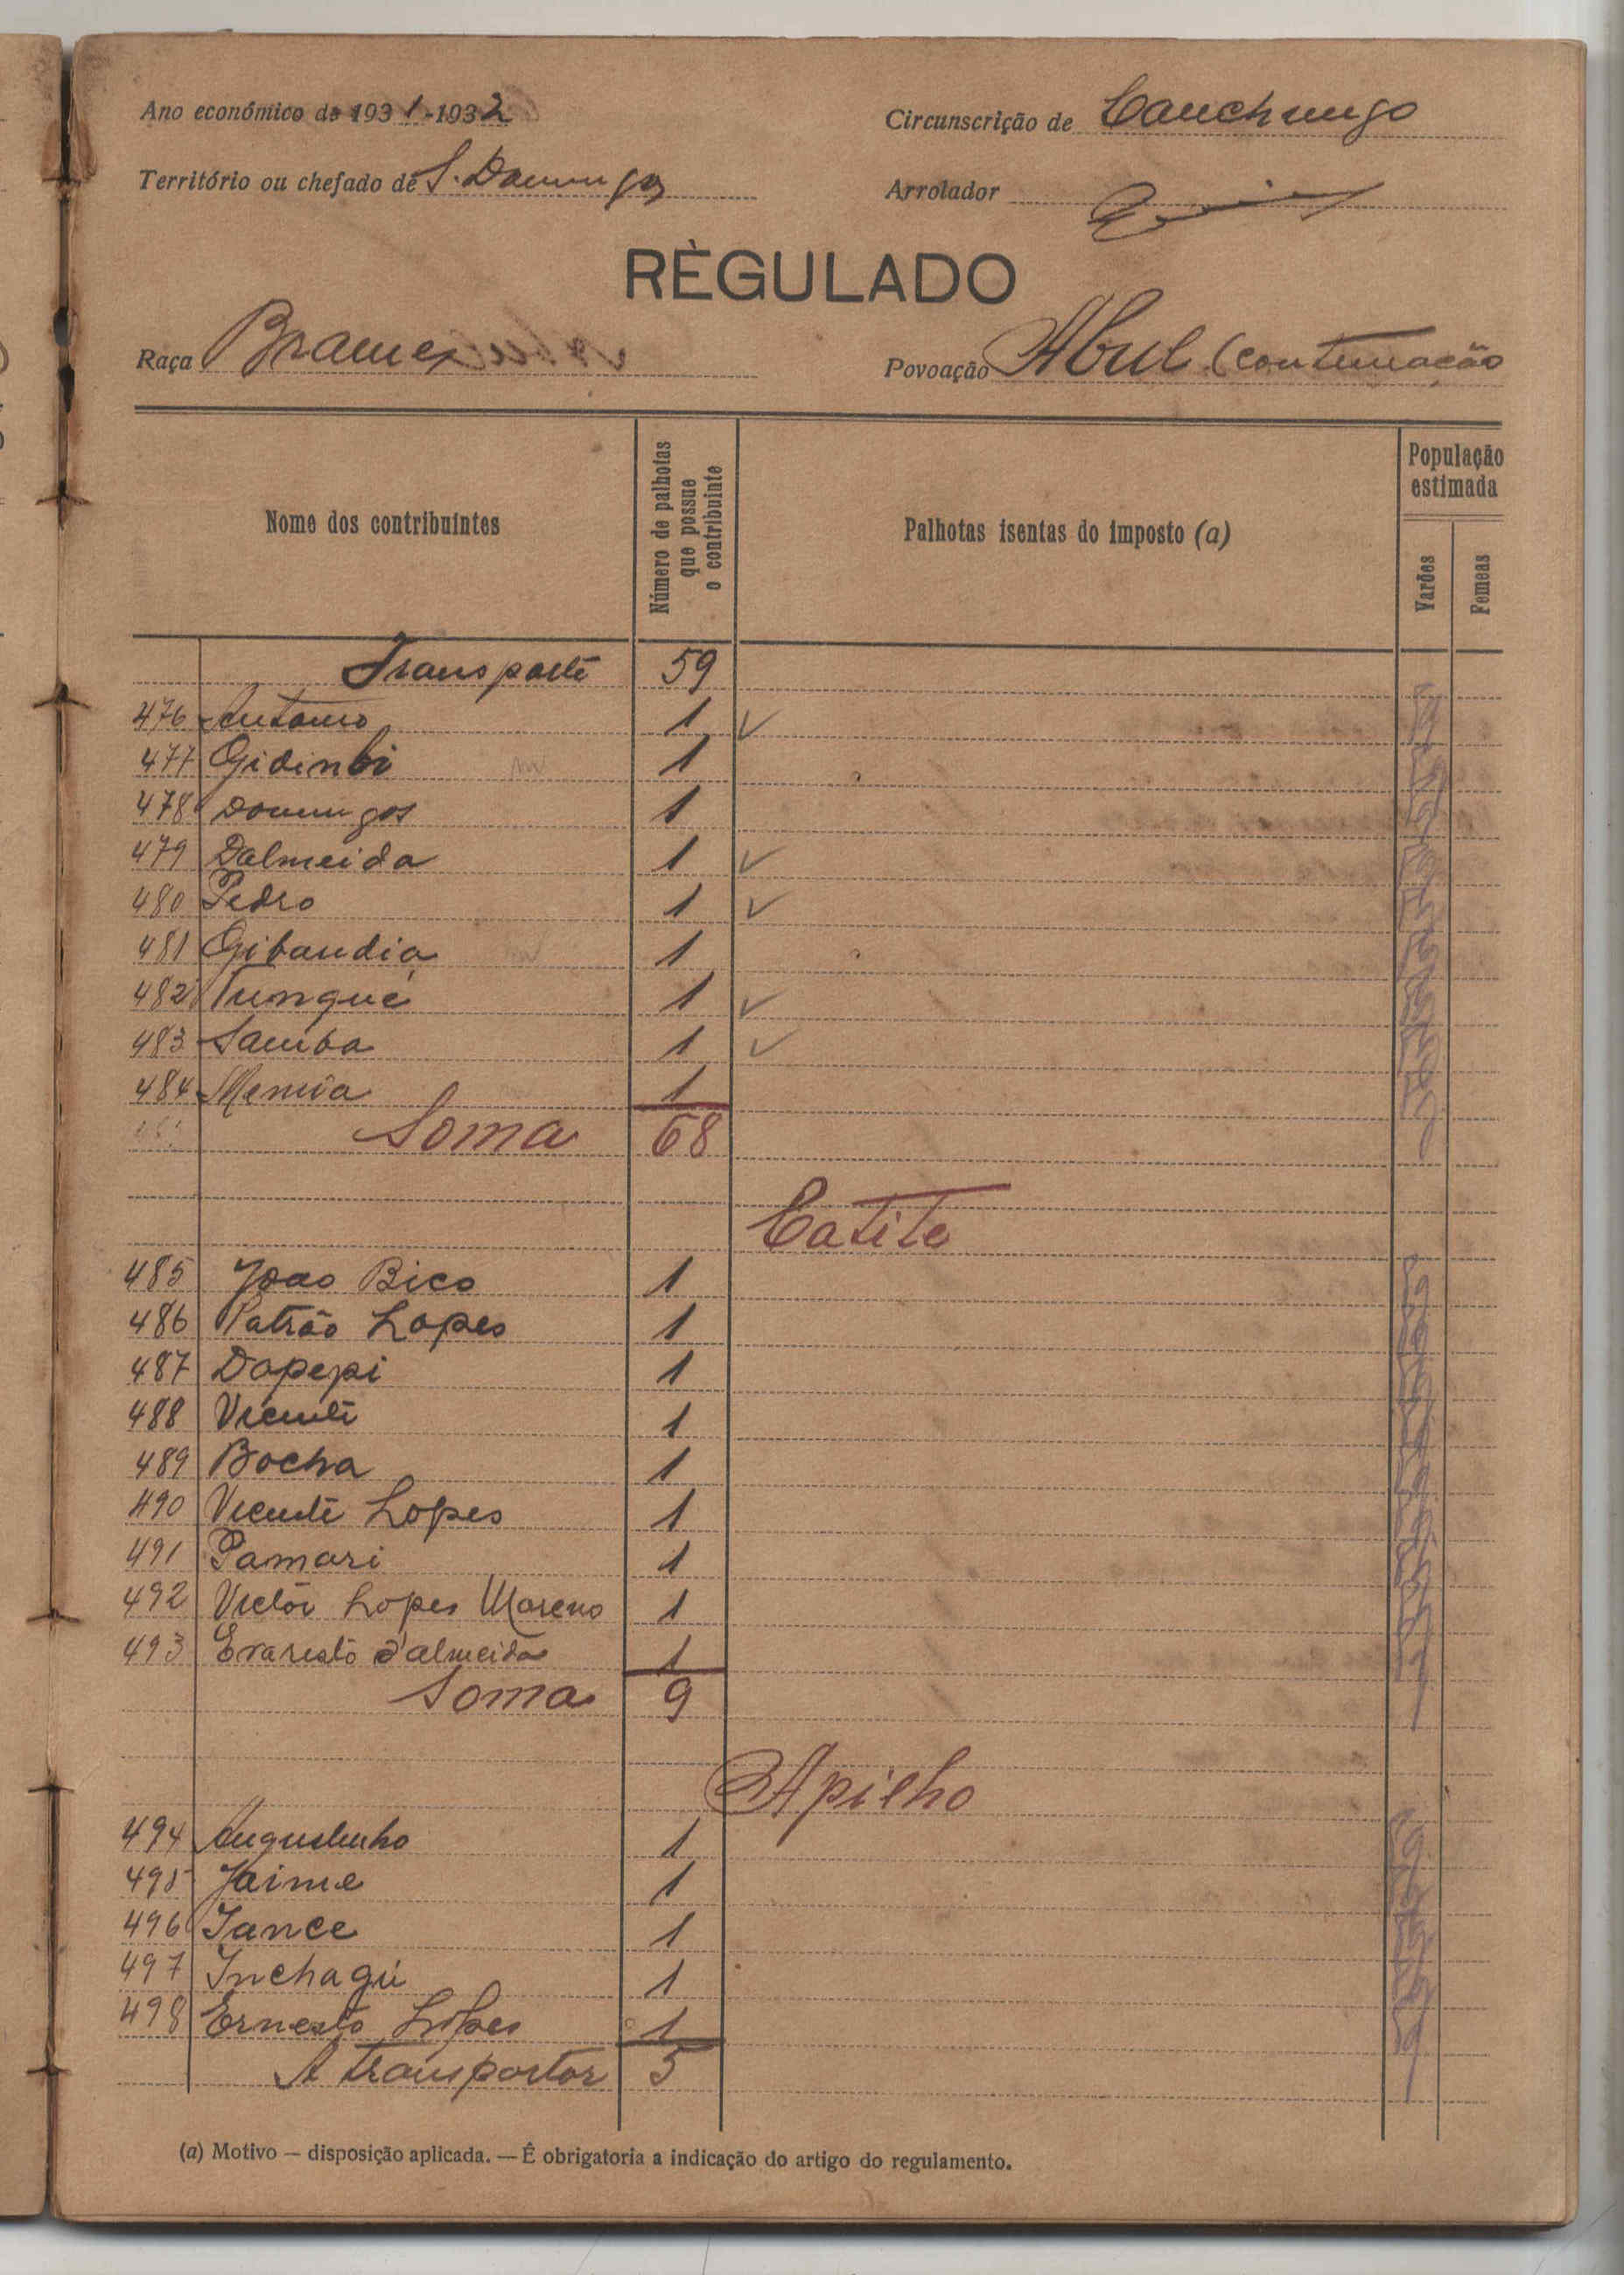 Ano económico de 1931-1932
Circunscrição de Canchungo
Território ou chefado de S. Domingos
Arrolador
RÈGULADO
Raça Brames
Povoação Abul (continuação
Nome dos contribuintes
Número de palhotas que possue o contribuinte
Palhotas isentas do imposto (a)
População estimada
Varões
Femeas
Transporte 59
476 Antonio 1 ✓
477 Gidinbi 1
478 Domingos 1
479 Dalmeida 1 ✓
480 Pedro 1 ✓
481 Gibandia 1
482 Tunqué 1 ✓
483 Samba 1 ✓
484 1
Soma 68
Catite
485 Joao Bico 1
486 Patrão Lopes 1
487 Dopepi 1
488 Vicente 1
489 Bocha 1
490 Vicente Lopes 1
491 Pamari 1
492 Victor Lopes Moreno 1
493 Evaristo d'almeida 1
Soma 9
Apilho
494 Augustinho 1
495 Jaime 1
496 Jance 1
497 Inchagú 1
498 Ernesto Lopes 1
A transportar 5
(a) Motivo — disposição aplicada. — É obrigatoria a indicação do artigo do regulamento.